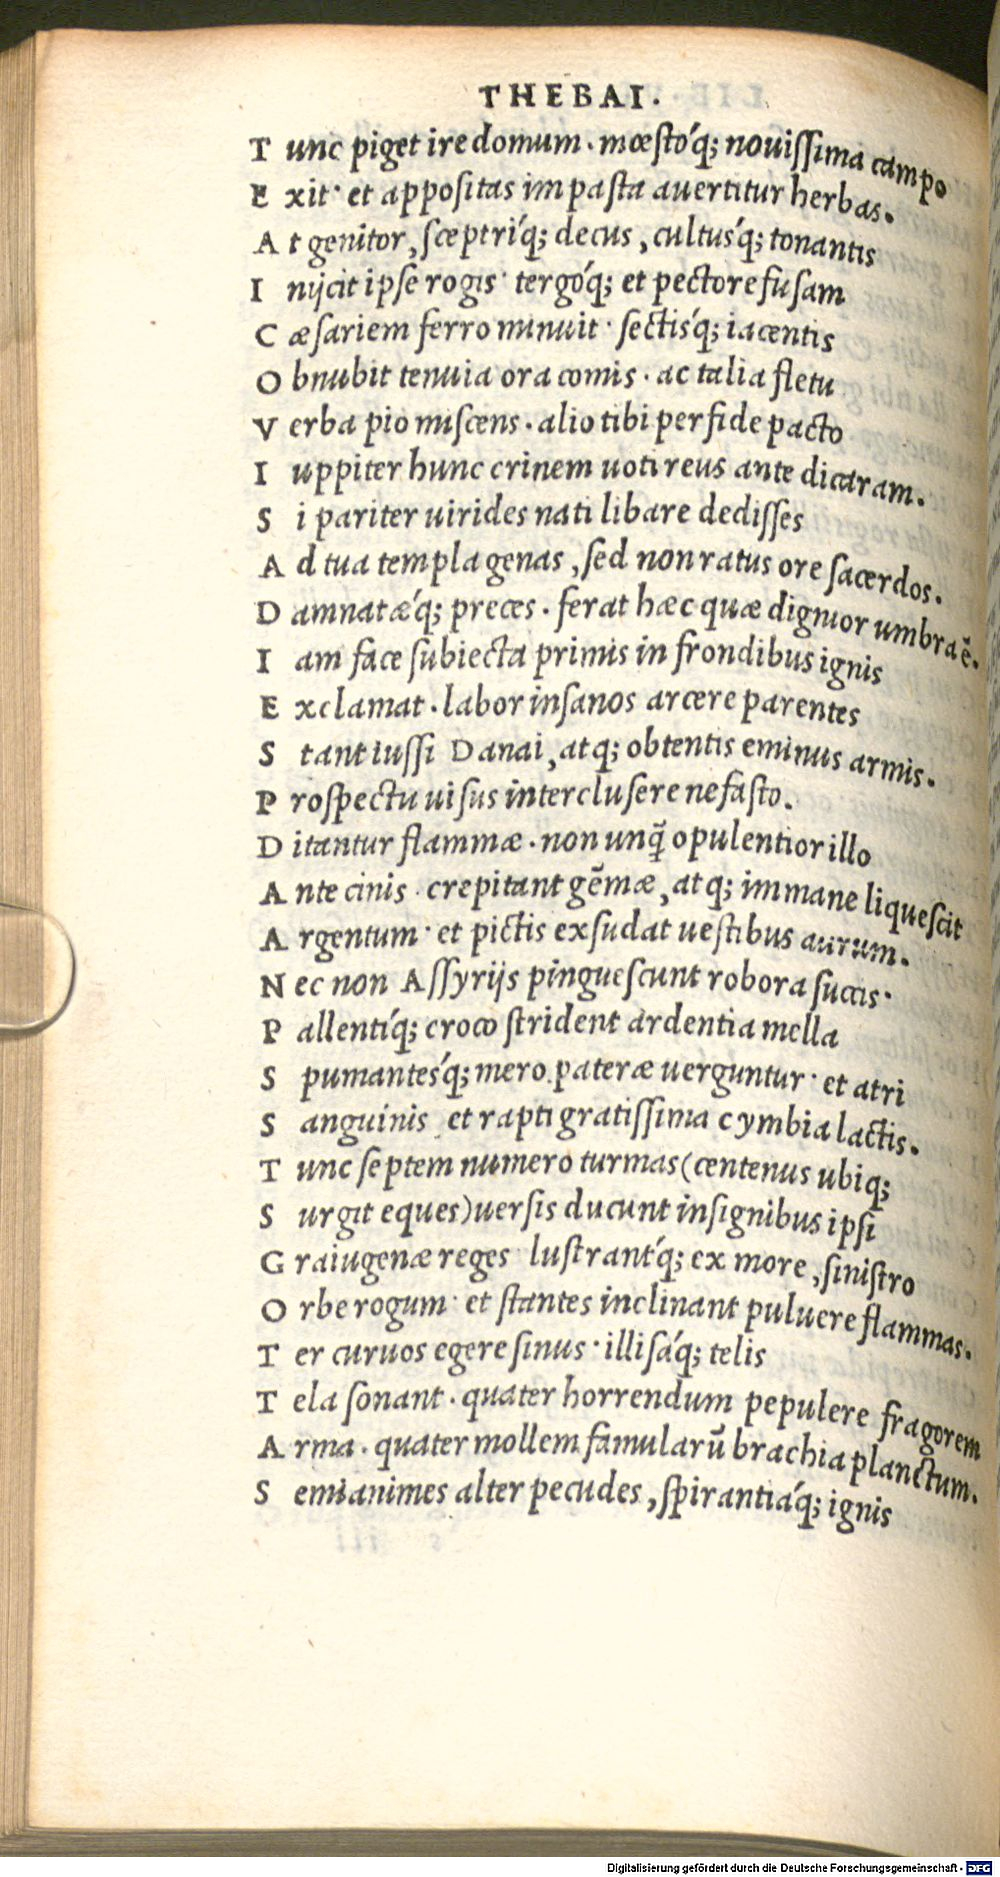 THEBAI.
Tunc piget ire domum. mœstóq; nouissima campo
Exit· et appositas impasta auertitur herbas.
At genitor, sceptríq; decus, cultusq́; tonantis
Inijcit ipse rogis· tergóq; et pectore fusam
Cæsariem ferro minuit· sectisq́; iacentis
Obnubit tenuia ora comis. ac talia fletu
Verba pio miscens. alio tibi perfide pacto
Iuppiter hunc crinem uoti reus ante dicaram.
Si pariter uirides nati libare dedisses
Ad tua templa genas, sed non ratus ore sacerdos.
Damnatæq́; preces. ferat hæc quæ dignior umbra ē.
Iam face subiecta primis in frondibus ignis
Exclamat. labor insanos arcere parentes
Stant iussi Danai, atq; obtentis eminus armis.
Prospectu uisus interclusere nefasto.
Ditantur flammæ. non unq̃ opulentior illo
Ante cinis· crepitant gēmæ, atq; immane liquescit
Argentum· et pictis exsudat uestibus aurum.
Nec non Assyrijs pinguescunt robora succis·
Pallentíq; croco strident ardentia mella
Spumantesq́; mero pateræ uerguntur· et atri
Sanguinis et rapti gratissima cymbia lactis.
Tunc septem numero turmas (centenus ubiq;
Surgit eques) uersis ducunt insignibus ipsi
Graiugenæ reges· lustrantq́; ex more, sinistro
Orbe rogum· et stantes inclinant puluere flammas.
Ter curuos egere sinus· illisáq; telis
Tela sonant. quater horrendum pepulere fragorem
Arma. quater mollem famularū brachia planctum.
Semianimes alter pecudes, spirantiáq; ignis
Digitalisierung gefördert durch die Deutsche Forschungsgemeinschaft - DFG